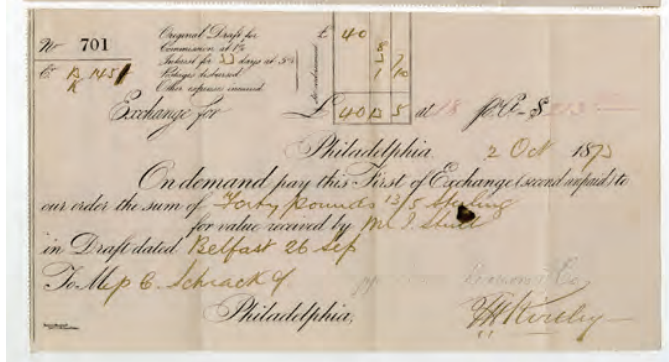 No 701 Original Draft for £ 40
Commission at 1% 8
Interest for 33 days at 5%
Postages disbursed 1 10
Other expenses incurred
Exchange for £ 40 13 5 at 18 p.Ct - $ 213
Philadelphia. 2 Oct 1873
On demand pay this First of Exchange (second unpaid) to
our order the sum of Forty pounds 13/5 Sterling
for value received by
in Draft dated Belfast 26 Sep
To C. Schrack &
Philadelphia,